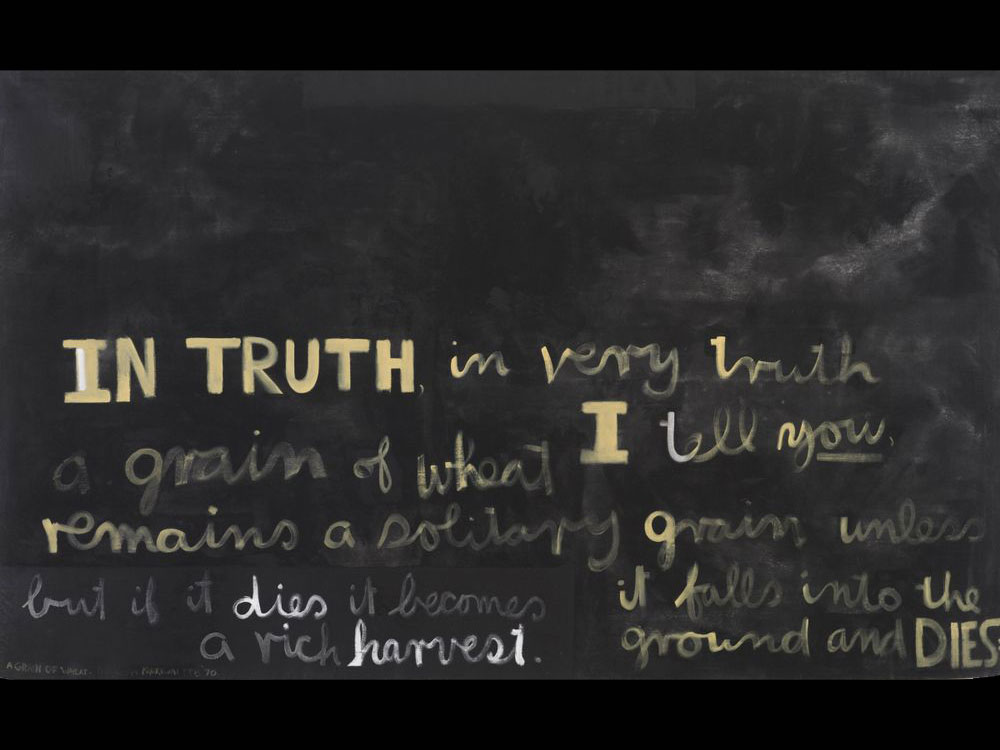 IN TRUTH, in very truth
I tell you,
a grain of wheat
remains a solitary grain unless
it falls into the
ground and DIES
but if it dies it becomes
a rich harvest.
A GRAIN OF WHEAT.